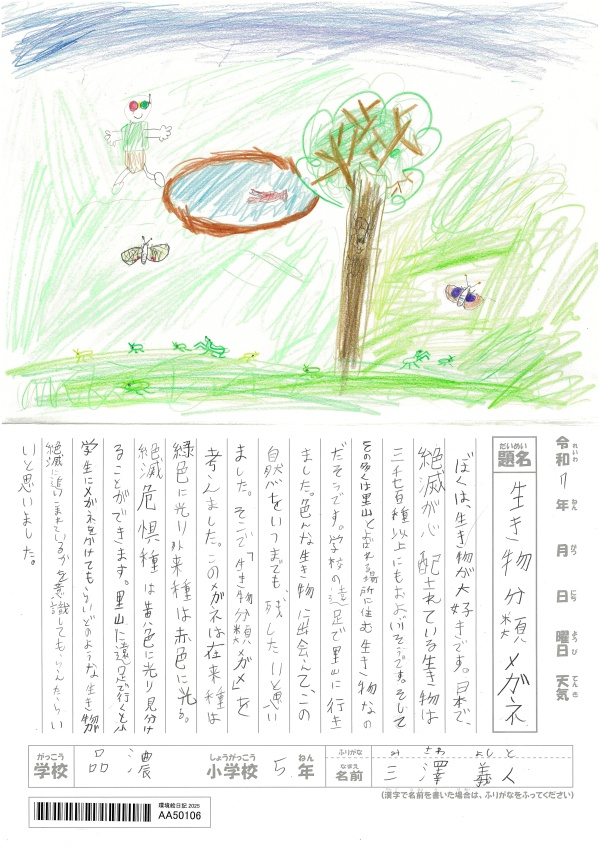 令和7年 月 日 曜日 天気
れいわ ねん がつ にち ようび てんき
だいめい
題名
生き物分類メガネ
ぼくは、生き物が大好きです。日本で、
絶滅が心配されている生き物は
三千七百種以上にもおよぶそうです。そして
その多くは里山とよばれる場所に住む生き物なの
だそうです。学校の遠足で里山に行き
ました。色んな生き物に出会えて、この
自然をいつまでも、残したいと思い
ました。そこで「生き物分類メガネ」を
考えました。このメガネは在来種は
緑色に光り外来種は赤色に光る。
絶滅危惧種は黄色に光り見分け
ることができます。里山に遠足で行くと小
学生にメガネをかけてもらいどのような生き物が
絶滅に追いこまれているかを意識してもらえたらい
いと思いました。
がっこう
学校
品濃
しょうがっこう
小学校
5年
ねん
ふりがな
みさわ よしと
なまえ
名前
三澤 義人
(漢字で名前を書いた場合は、ふりがなをふってください)
環境絵日記2025
AA50106